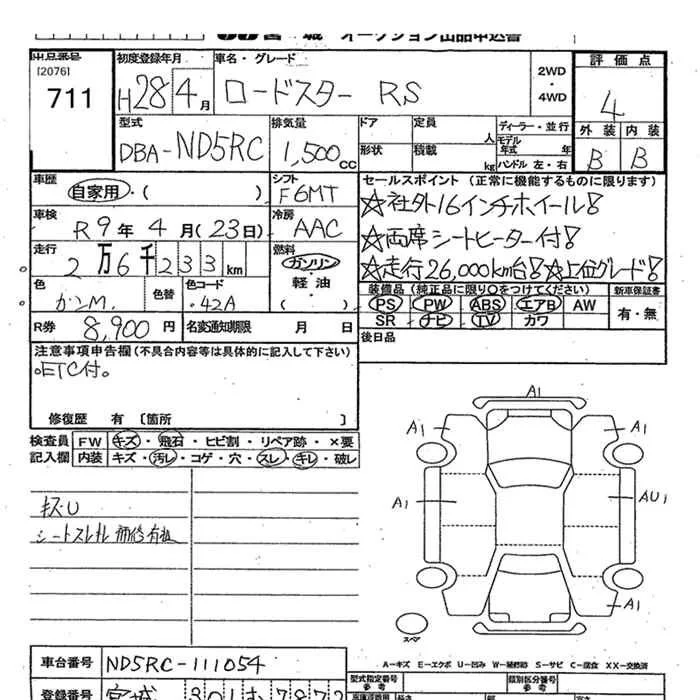 オークション出品申込書
出品番号
[2076]
711
初度登録年月
H28年4月
車名・グレード
ロードスター RS
2WD
・
4WD
評価点
4
外装 内装
B B
型式
DBA-ND5RC
排気量
1,500cc
ドア
形状
定員 人
積載 kg
ディーラー・並行
モデル年式 年
ハンドル 左・右
車歴
自家用・( )
シフト
F6MT
車検
R9年4月(23日)
冷房
AAC
走行
2万6千233km
燃料
ガソリン・
軽油・
( )
色
ガンM.
色替
色コード
42A
R券 8,900円
名変通知期限 月 日
セールスポイント (正常に機能するものに限ります)
☆社外16インチホイール!
☆両席シートヒーター付!
☆走行26,000km台!☆上位グレード!
装備品(純正品に限り○をつけてください)
新車保証書
PS PW ABS エアB AW
SR ナビ TV カワ
有・無
後日品
注意事項申告欄(不具合内容等は具体的に記入して下さい)
。ETC付。
修復歴 有 〔箇所 〕
検査員記入欄
FW キズ・飛石・ヒビ割・リペア跡・×要
内装 キズ・汚レ・コゲ・穴・スレ・キレ・破レ
キズU
シートスレキレ補修有
A1
A1 A1
A1 AU1
A1
スペア
A-キズ E-エクボ U-凹み W-補修跡 S-サビ C-腐食 XX-交換済
車台番号 ND5RC-111054
登録番号 宮城 301
型式指定番号
参考
類別区分番号
参考